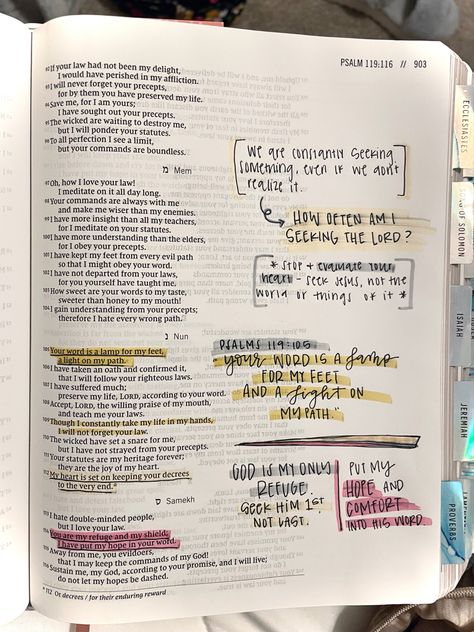 PSALM 119:116 // 903
92 If your law had not been my delight,
I would have perished in my affliction.
93 I will never forget your precepts,
for by them you have preserved my life.
94 Save me, for I am yours;
I have sought out your precepts.
95 The wicked are waiting to destroy me,
but I will ponder your statutes.
96 To all perfection I see a limit,
but your commands are boundless.
מ Mem
97 Oh, how I love your law!
I meditate on it all day long.
98 Your commands are always with me
and make me wiser than my enemies.
99 I have more insight than all my teachers,
for I meditate on your statutes.
100 I have more understanding than the elders,
for I obey your precepts.
101 I have kept my feet from every evil path
so that I might obey your word.
102 I have not departed from your laws,
for you yourself have taught me.
103 How sweet are your words to my taste,
sweeter than honey to my mouth!
104 I gain understanding from your precepts;
therefore I hate every wrong path.
נ Nun
105 Your word is a lamp for my feet,
a light on my path.
106 I have taken an oath and confirmed it,
that I will follow your righteous laws.
107 I have suffered much;
preserve my life, LORD, according to your word.
108 Accept, LORD, the willing praise of my mouth,
and teach me your laws.
109 Though I constantly take my life in my hands,
I will not forget your law.
110 The wicked have set a snare for me,
but I have not strayed from your precepts.
111 Your statutes are my heritage forever;
they are the joy of my heart.
112 My heart is set on keeping your decrees
to the very end.*
ס Samekh
113 I hate double-minded people,
but I love your law.
114 You are my refuge and my shield;
I have put my hope in your word.
115 Away from me, you evildoers,
that I may keep the commands of my God!
116 Sustain me, my God, according to your promise, and I will live;
do not let my hopes be dashed.
*112 Or decrees / for their enduring reward
We are constantly seeking
something, even if we don't
realize it.
HOW OFTEN AM I
SEEKING THE LORD?
* STOP + evaluate your
heart - seek Jesus, not the
world or things of it *
PSALMS 119:105
"YOUR WORD IS A lamp
FOR MY FEET
AND A light ON
MY PATH."
GOD IS MY ONLY
REFUGE.
SEEK HIM 1ST
NOT LAST.
PUT MY
HOPE AND
COMFORT
INTO HIS WORD.
ECCLESIASTES
OF SOLOMON
ISAIAH
JEREMIAH
PROVERBS